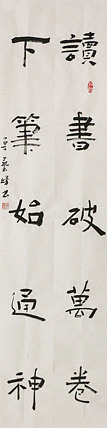 讀書破萬卷
下筆如通神